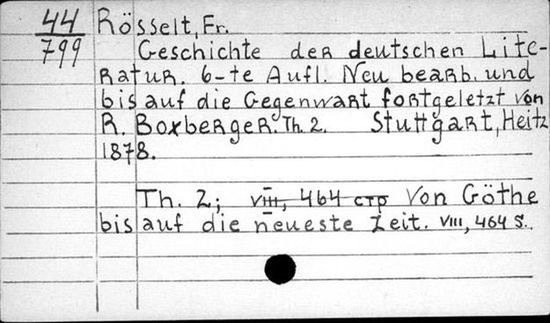 44
799
Rösselt, Fr.
Geschichte der deutschen Lite-
ratur. 6-te Aufl. Neu bearb. und
bis auf die Gegenwart fortgeletzt von
R. Boxberger. Th. 2. Stuttgart, Heitz
1878.
Th. 2; VIII, 464 стр Von Göthe
bis auf die neueste Zeit. VIII, 464 S.